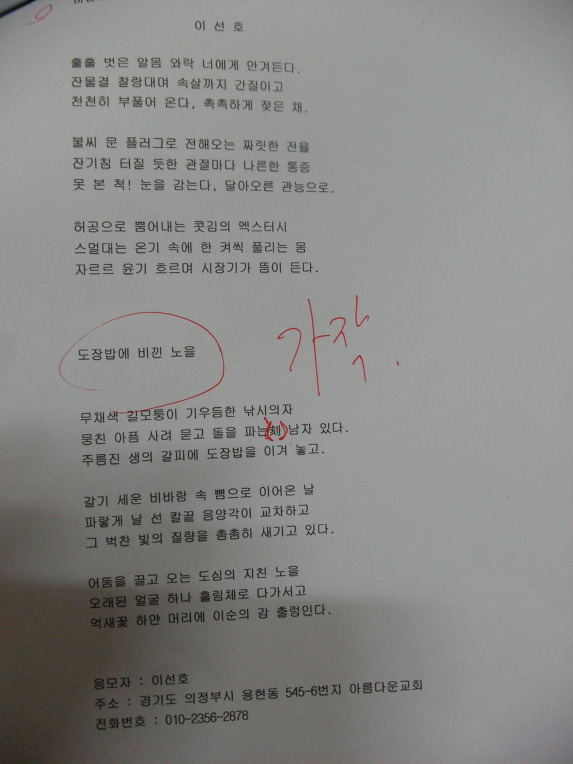 이 선 호
훌훌 벗은 알몸 와락 너에게 안겨든다.
잔물결 찰랑대며 속살까지 간질이고
천천히 부풀어 온다, 촉촉하게 젖은 채.
불씨 문 플러그로 전해오는 짜릿한 전율
잔기침 터질 듯한 관절마다 나른한 통증
못 본 척! 눈을 감는다, 달아오른 관능으로.
허공으로 뿜어내는 콧김의 엑스터시
스멀대는 온기 속에 한 켜씩 풀리는 몸
자르르 윤기 흐르며 시장기가 뜸이 든다.
가작
도장밥에 비낀 노을
무채색 길모퉁이 기우듬한 낚시의자
뭉친 아픔 사려 묻고 돌을 파는(刻) 남자 있다.
주름진 생의 갈피에 도장밥을 이겨 놓고.
갈기 세운 비바람 속 뺨으로 이어온 날
파랗게 날 선 칼끝 음양각이 교차하고
그 벅찬 빛의 질량을 촘촘히 새기고 있다.
어둠을 끌고 오는 도심의 지친 노을
오래된 얼굴 하나 흘림체로 다가서고
억새꽃 하얀 머리에 이순의 강 출렁인다.
응모자 : 이선호
주소 : 경기도 의정부시 용현동 545-6번지 아름다운교회
전화번호 : 010-2356-2878